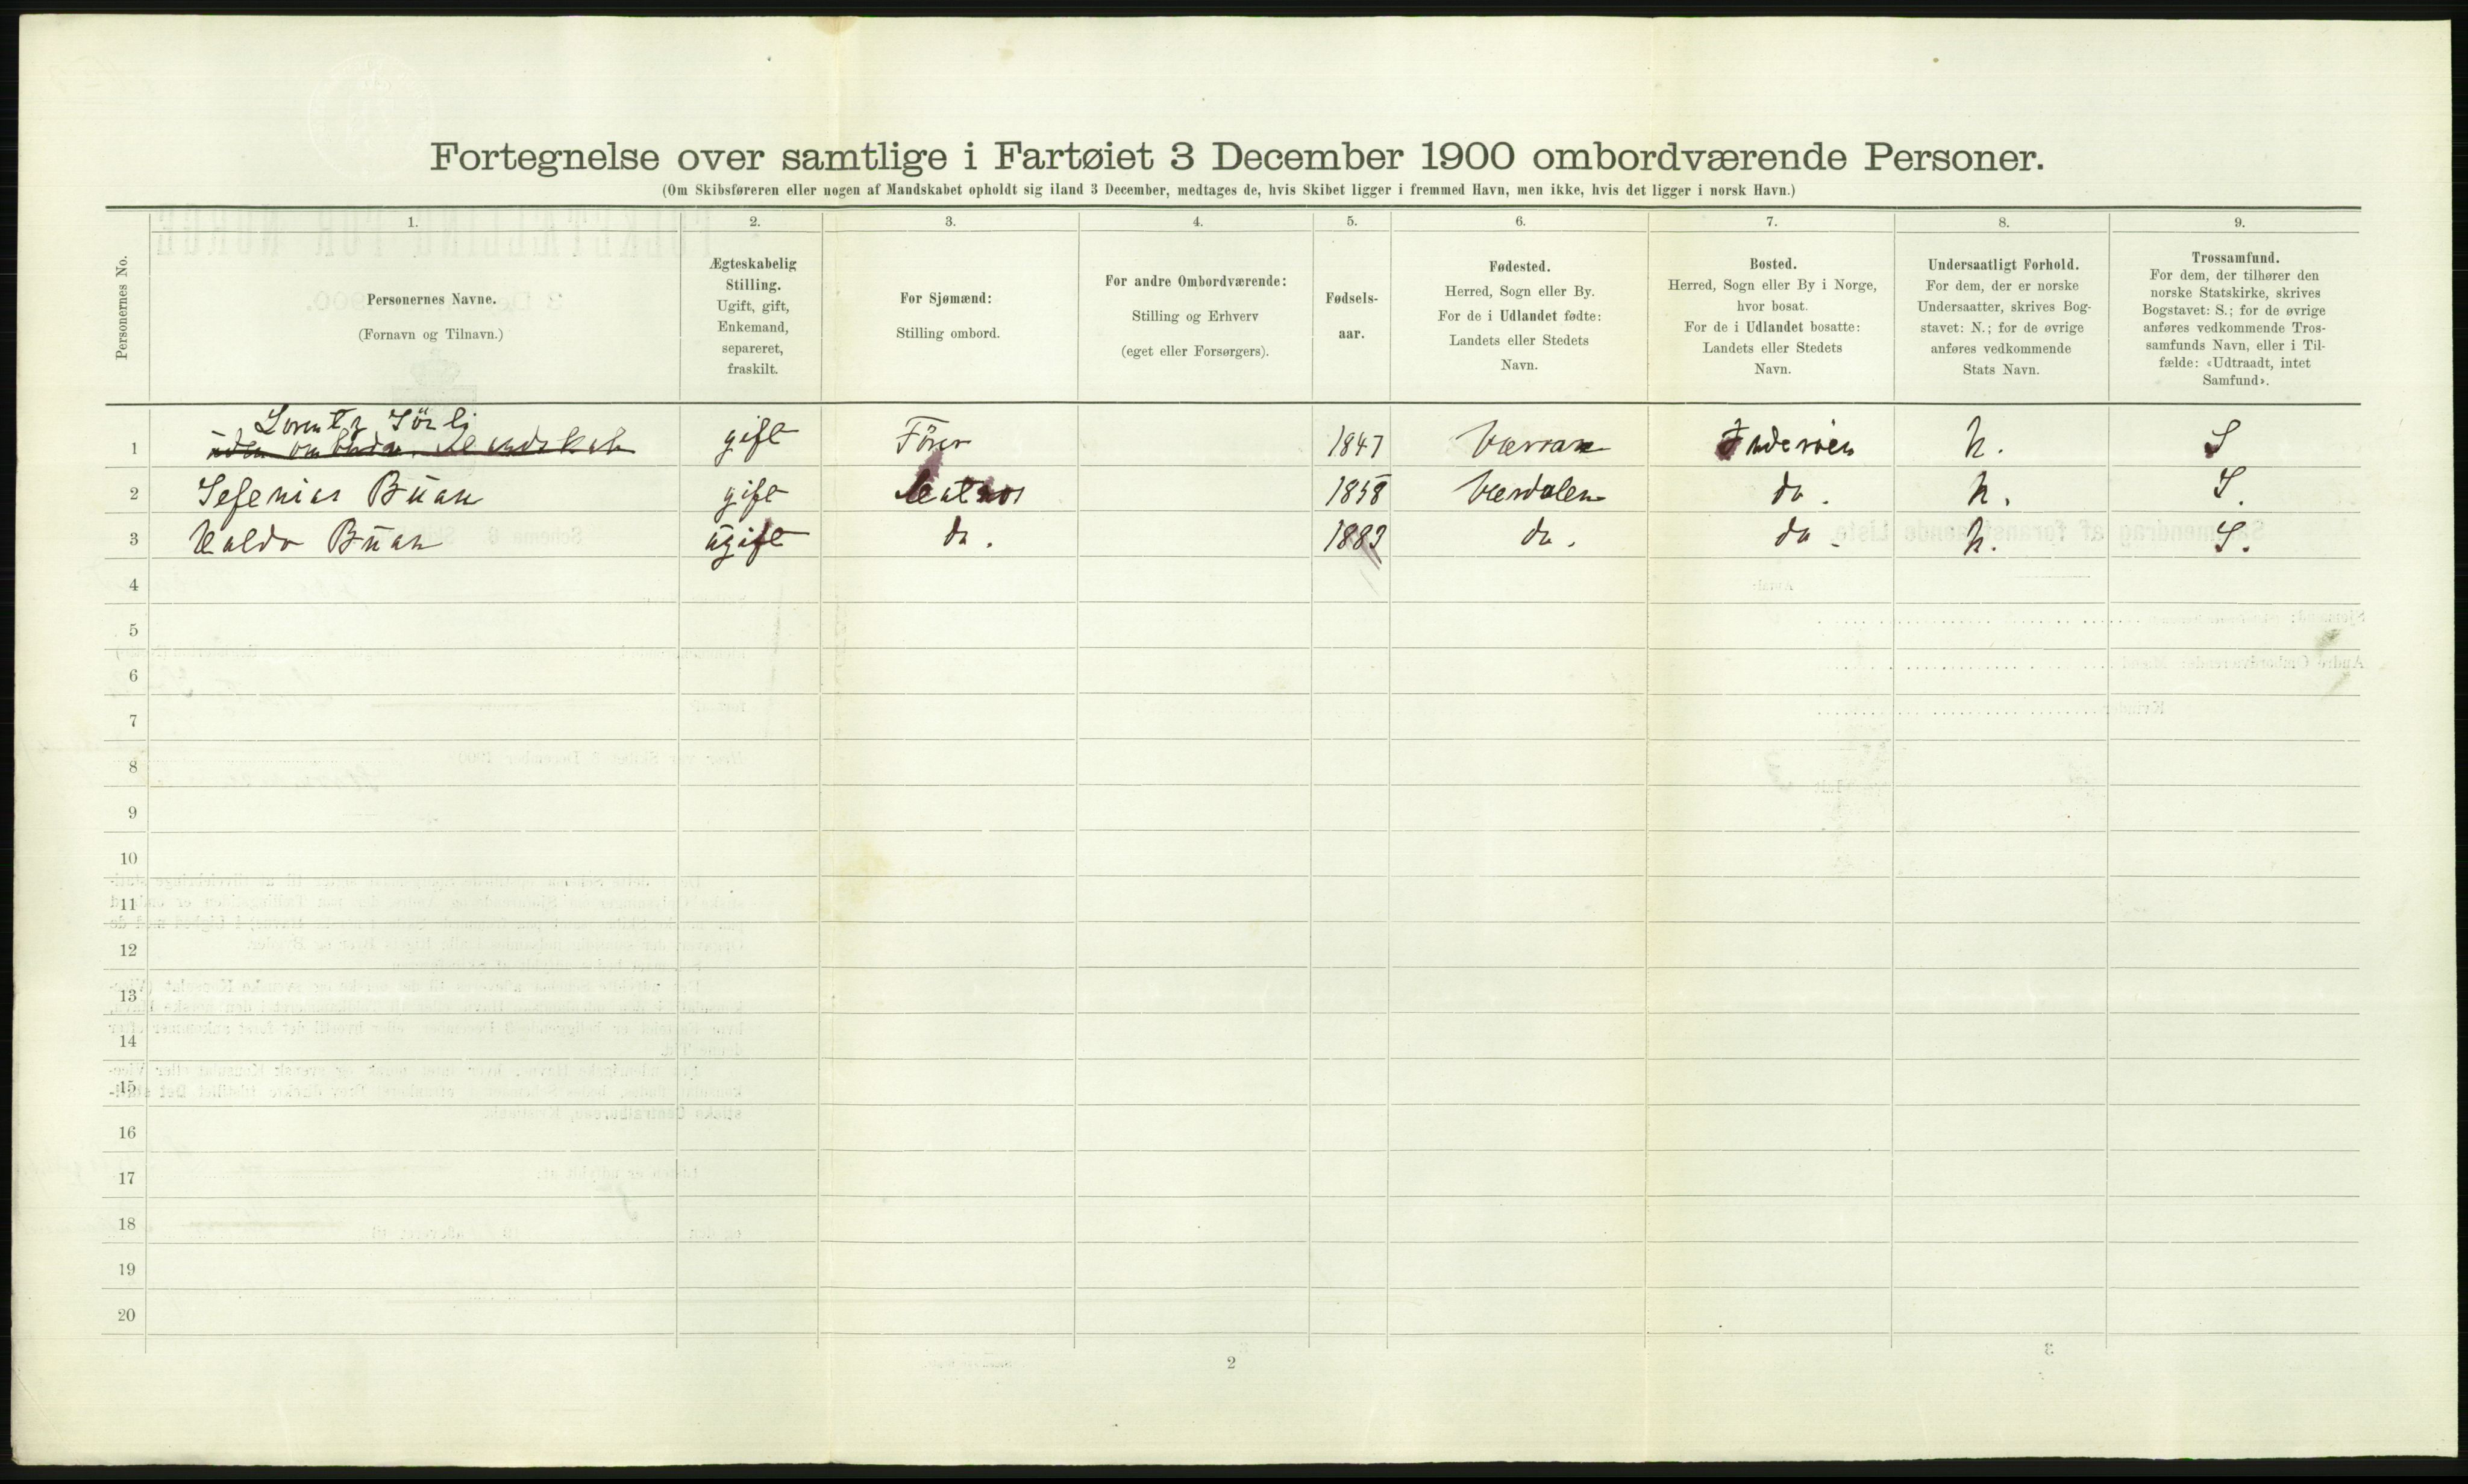 Fortegnelse over samtlige i Fartøiet 3 December 1900 ombordværende Personer.
(Om Skibsføreren eller nogen af Mandskabet opholdt sig iland 3 December, medtages de, hvis Skibet ligger i fremmed Havn, men ikke, hvis det ligger i norsk Havn.)
Personernes No.
1. 2. 3. 4. 5. 6. 7. 8. 9.
Personernes Navne.
(Fornavn og Tilnavn.)
Ægteskabelig
Stilling.
Ugift, gift,
Enkemand,
separeret,
fraskilt.
For Sjømænd:
Stilling ombord.
For andre Ombordværende:
Stilling og Erhverv
(eget eller Forsørgers).
Fødsels-
aar.
Fødested.
Herred, Sogn eller By.
For de i Udlandet fødte:
Landets eller Stedets
Navn.
Bosted.
Herred, Sogn eller By i Norge,
hvor bosat.
For de i Udlandet bosatte:
Landets eller Stedets
Navn.
Undersaatligt Forhold.
For dem, der er norske
Undersaatter, skrives Bog-
stavet: N.; for de øvrige
anføres vedkommende
Stats Navn.
Trossamfund.
For dem, der tilhører den
norske Statskirke, skrives
Bogstavet: S.; for de øvrige
anføres vedkommende Tros-
samfunds Navn, eller i Til-
fælde: «Udtraadt, intet
Samfund».
Lorentz Sörli
1 gift Förer 1847 Værran Inderöen N. S
2 Sefenias Buan gift Matros 1858 Værdalen do. N. S.
3 Buan ugift do. 1882 do. do. N. S.
4
5
6
7
8
9
10
11
12
13
14
15
16
17
18
19
20
2